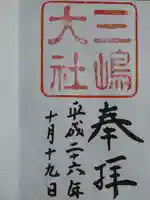 三嶋
大社
奉拝
平成二十六年
十月十九日